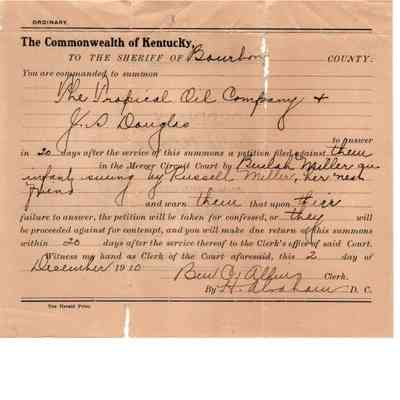 ORDINARY.
The Commonwealth of Kentucky,
TO THE SHERIFF OF Bourbon COUNTY:
You are commanded to summon
The Tropical Oil Company &
J. S. Douglas
to answer
in 20 days after the service of this summons a petition filed against them
in the Mercer Circuit Court by Beulah Miller an
infant suing by Russell Miller, her next
friend
and warn them that upon their
failure to answer, the petition will be taken for confessed, or they will
be proceeded against for contempt, and you will make one return of this summons
within 20 days after the service thereof to the Clerk's office of said Court.
Witness my hand as Clerk of the Court aforesaid, this 2 day of
December 1910
Ben C. Allin Clerk.
By H. Abraham D. C.
The Herald Print.